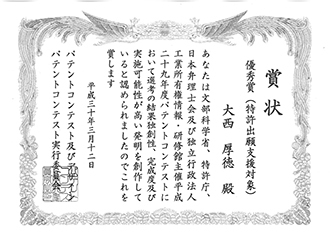 賞状
優秀賞（特許出願支援対象）
大西 厚徳 殿
あなたは文部科学省、特許庁、
日本弁理士会及び独立行政法人
工業所有権情報・研修館主催平成
二十九年度パテントコンテストに
おいて選考の結果独創性、完成度及び
実施可能性が高い発明を創作して
いると認められましたのでこれを
賞します
平成三十年三月十二日
パテントコンテスト及びデザイン
パテントコンテスト実行委員会